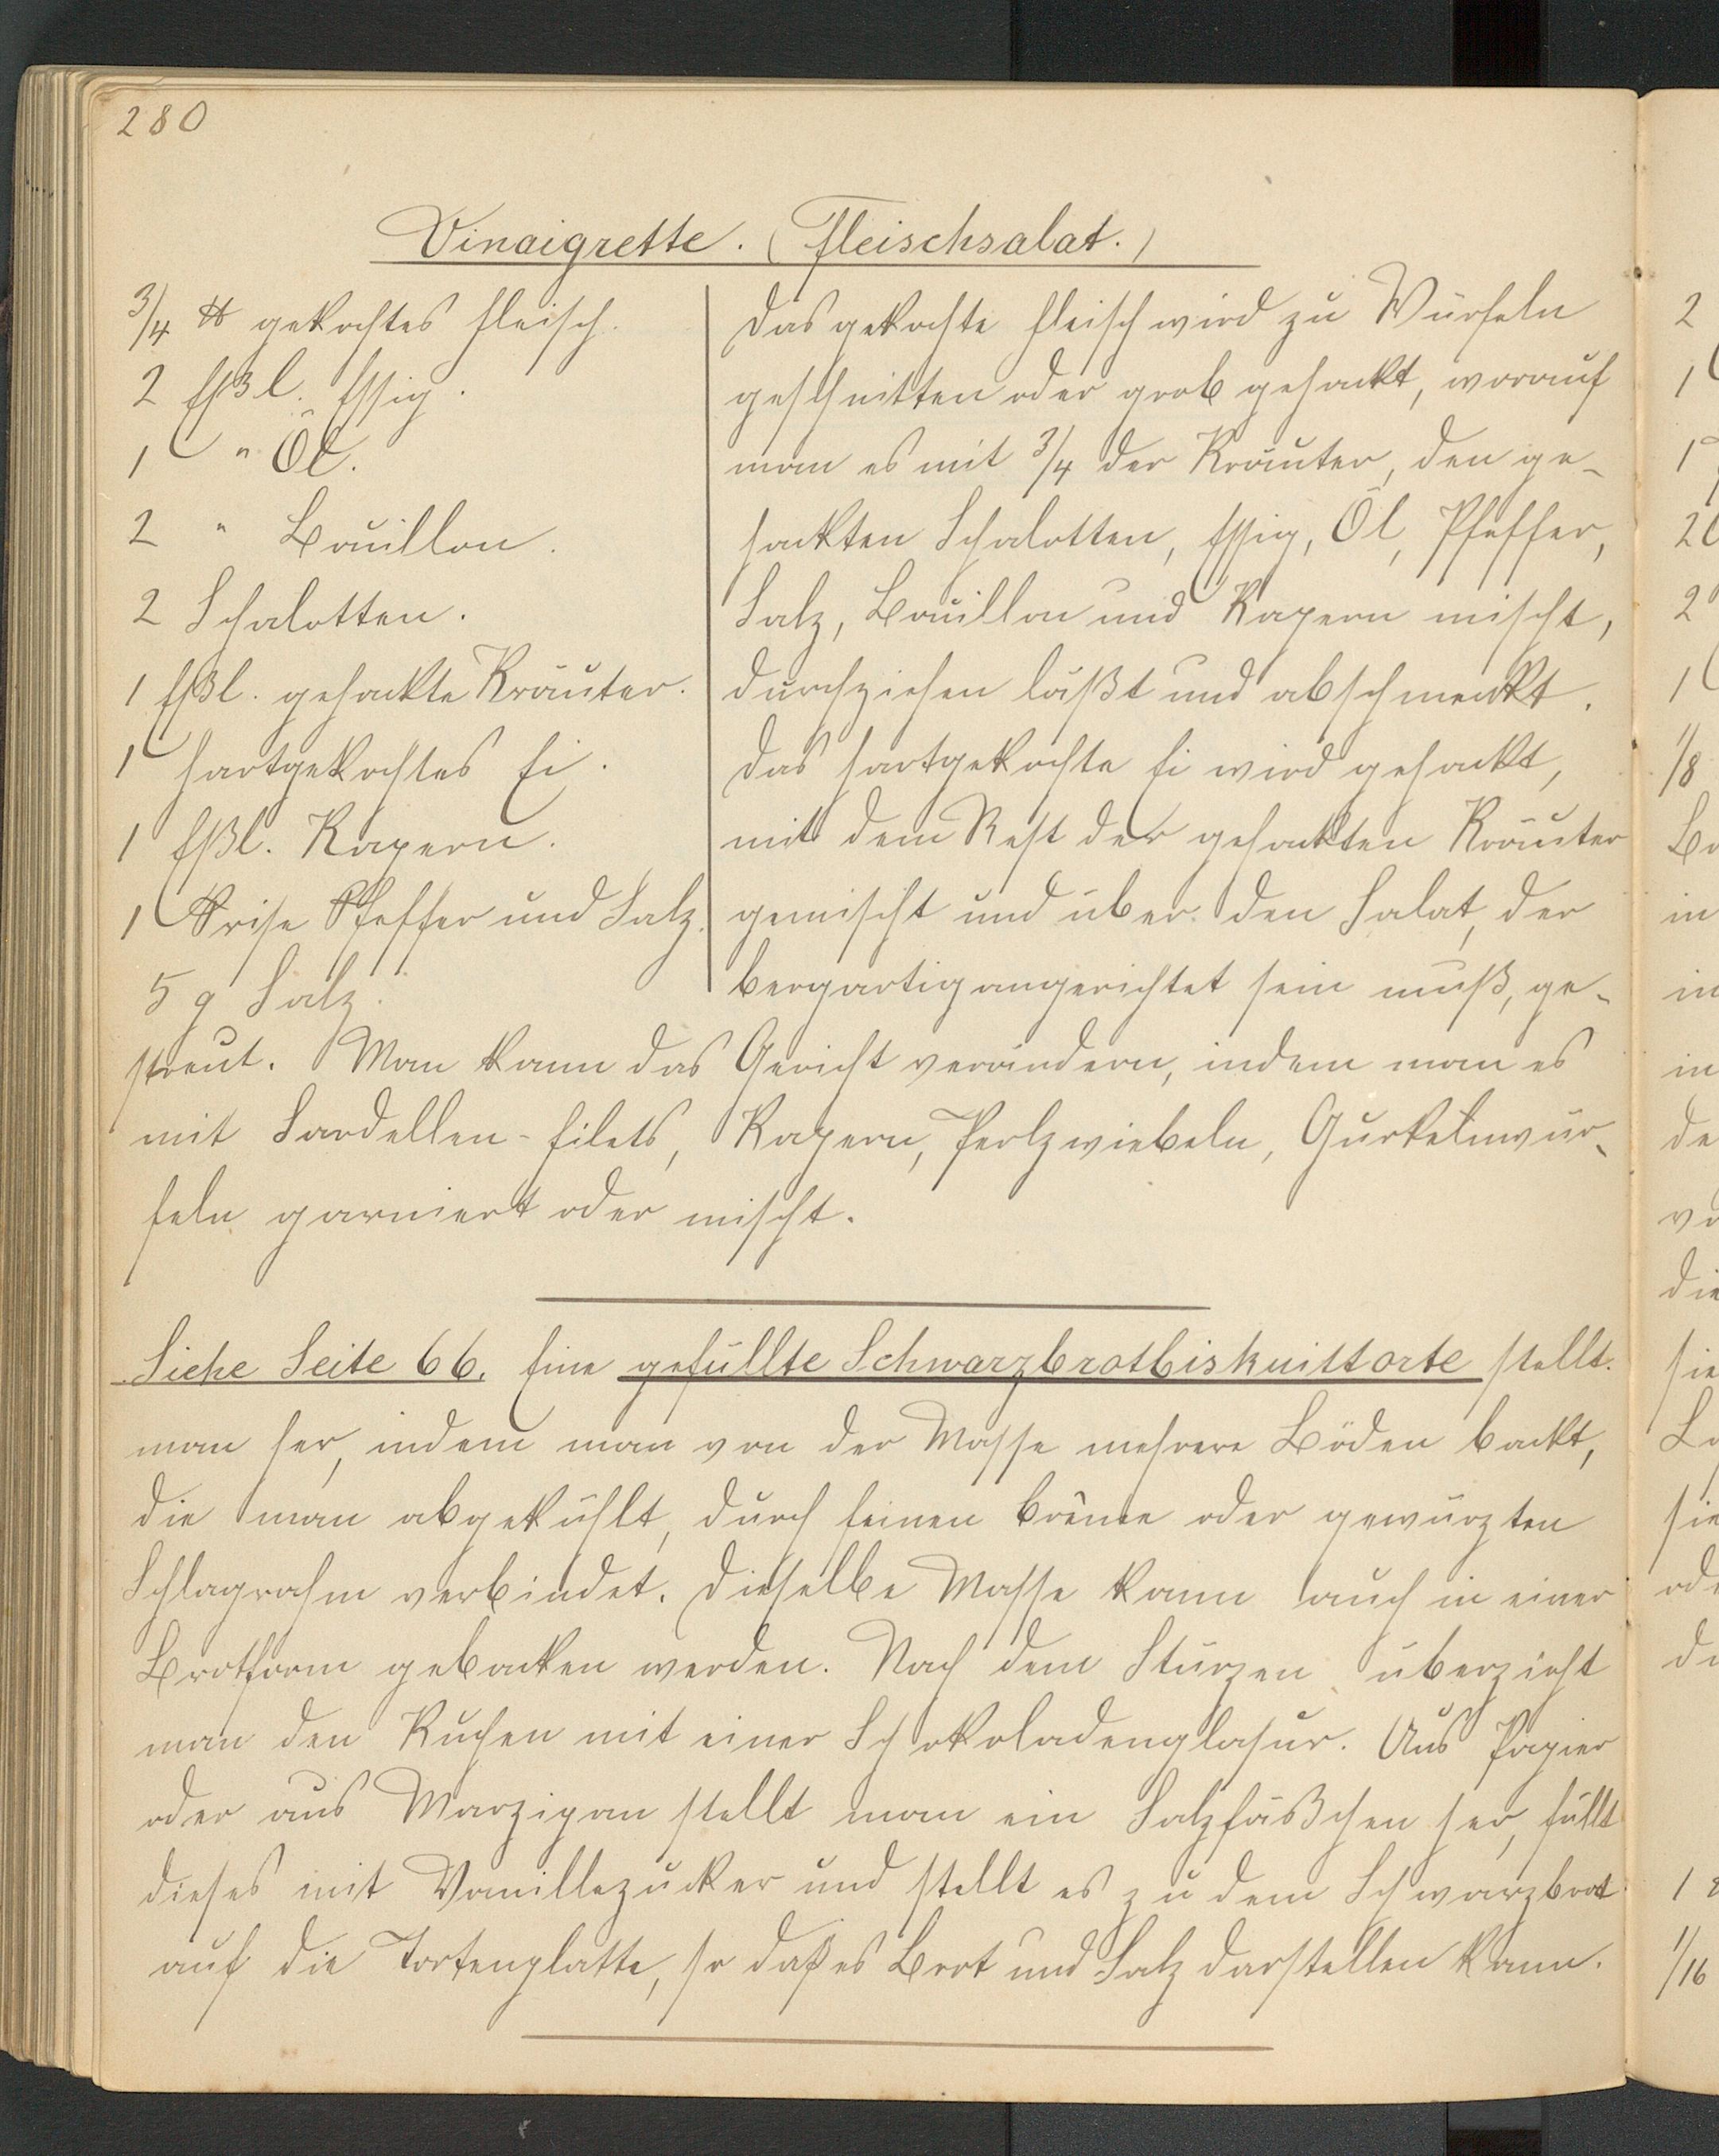 280
Vinaigrette. (Fleischsalat.)
3/4 ℔ gekochtes Fleisch.
2 Eßl. Essig.
1 " Öl.
2 " Bouillon.
2 Schalotten.
1 Eßl. gehackte Kräuter.
1 hartgekochtes Ei.
1 Eßl. Kapern.
1 Prise Pfeffer und Salz.
5 g Salz.
Das gekochte Fleisch wird zu Würfeln
geschnitten oder grob gehackt, worauf
man es mit 3/4 der Kräuter, den ge-
hackten Schalotten, Essig, Öl, Pfeffer,
Salz, Bouillon und Kapern mischt,
durchziehen läßt und abschmeckt.
Das hartgekochte Ei wird gehackt,
mit dem Rest der gehackten Kräuter
gemischt und über den Salat, der
bergartig angerichtet sein muß, ge-
streut. Man kann das Gericht verändern, indem man es
mit Sardellen-Filets, Kapern, Perlzwiebeln, Gurkenwür-
feln garniert oder mischt.
Siehe Seite 66. Eine gefüllte Schwarzbrotbiskuittorte stellt
man her, indem man von der Masse mehrere Böden backt,
die man abgekühlt, durch feinen Crême oder gewürzten
Schlagrahm verbindet. Dieselbe Masse kann auch in einer
Brotform gebacken werden. Nach dem Stürzen überzieht
man den Kuchen mit einer Schokoladenglasur. Aus Papier
oder aus Marzipan stellt man ein Salzfäßchen her, füllt
dieses mit Vanillezucker und stellt es zu dem Schwarzbrot
auf die Tortenplatte, so daß es Brot und Salz darstellen kann.
2
1
1
2
2
1
1/8
in
in
in
de
die
sie
sie
1
1/16